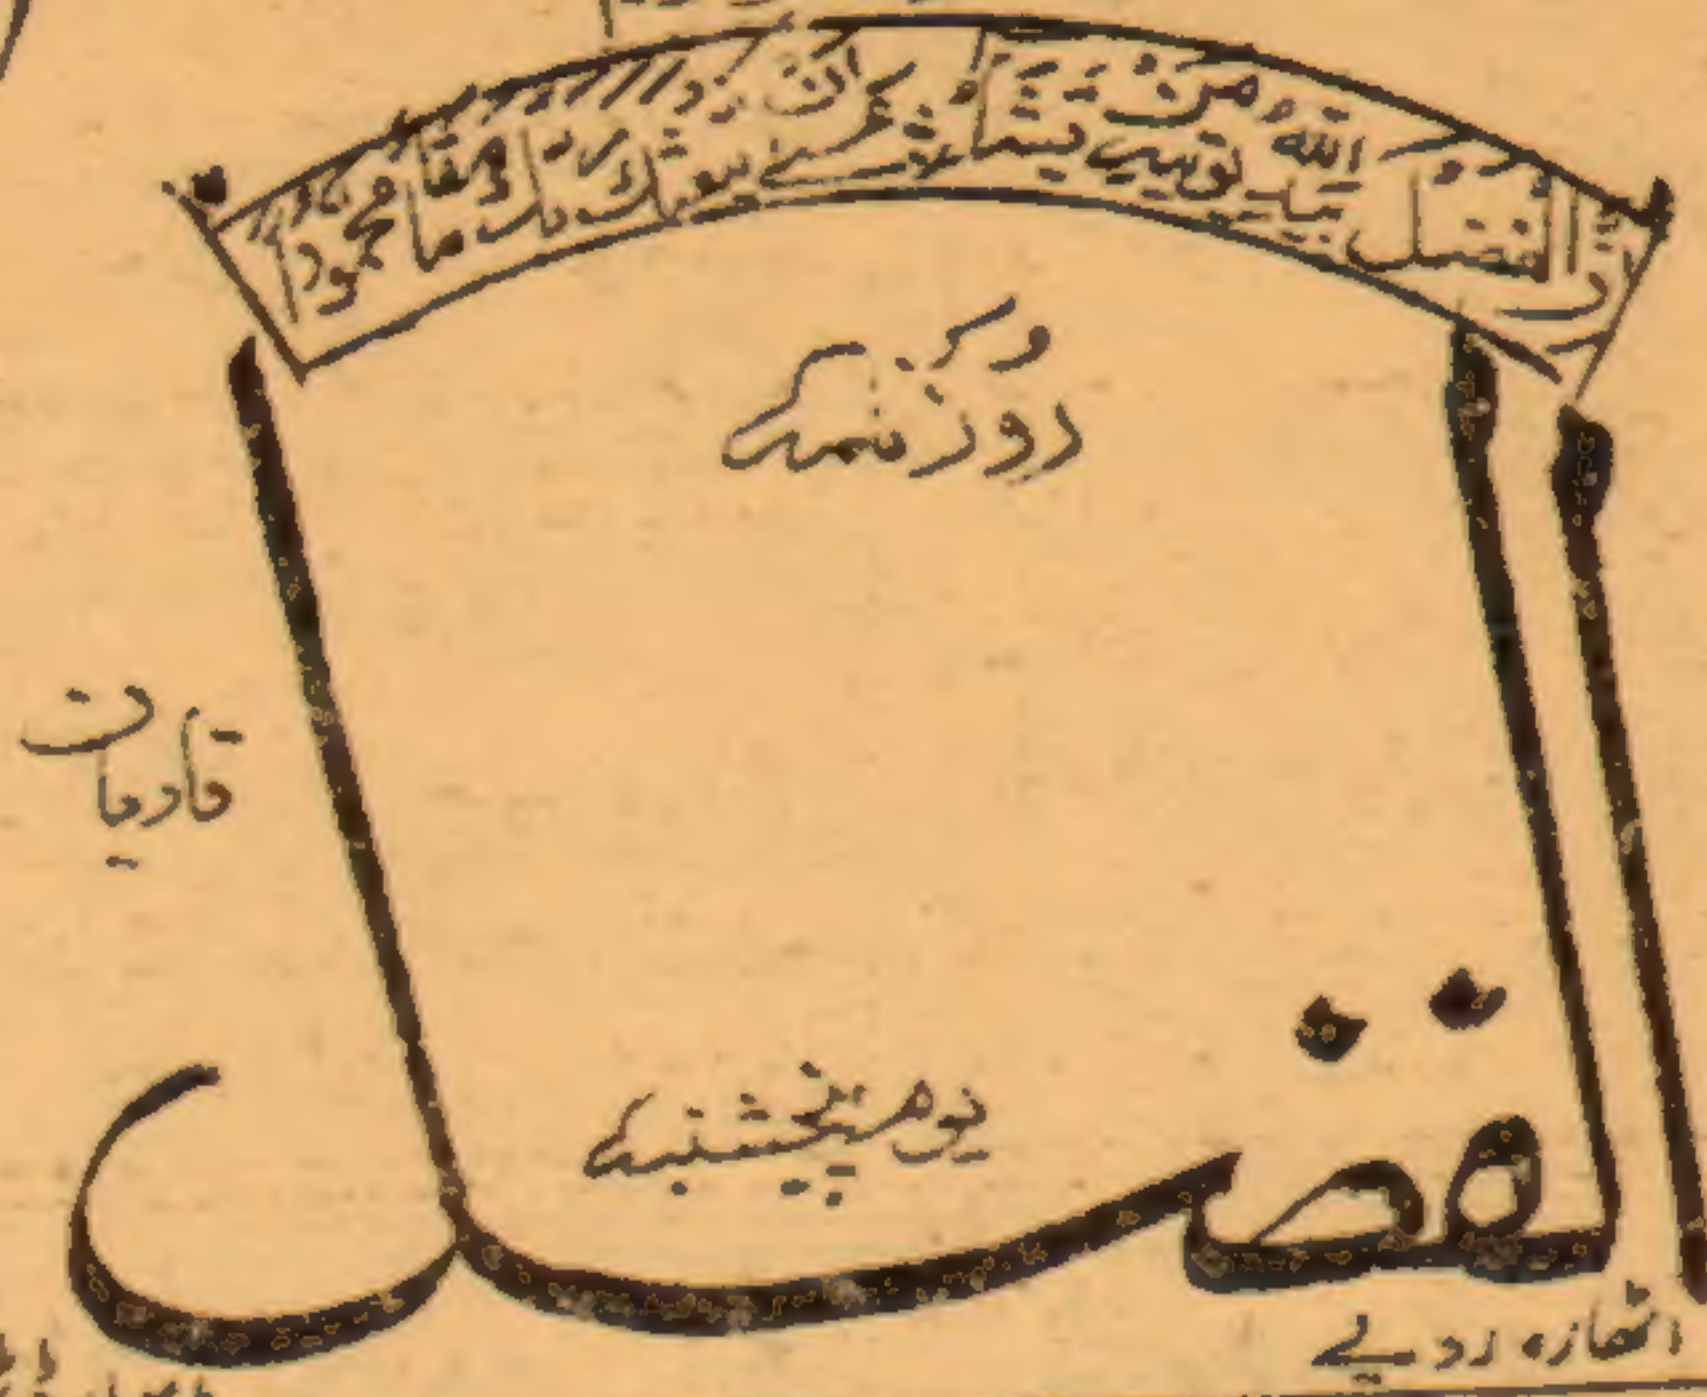 ان الفضل بيد الله يؤتيه من يشاء عسى ان يبعثك ربك مقاما محمودا
روزنامہ
قادیان
الفضل
یوم پنجشنبہ
اٹھارہ روپے